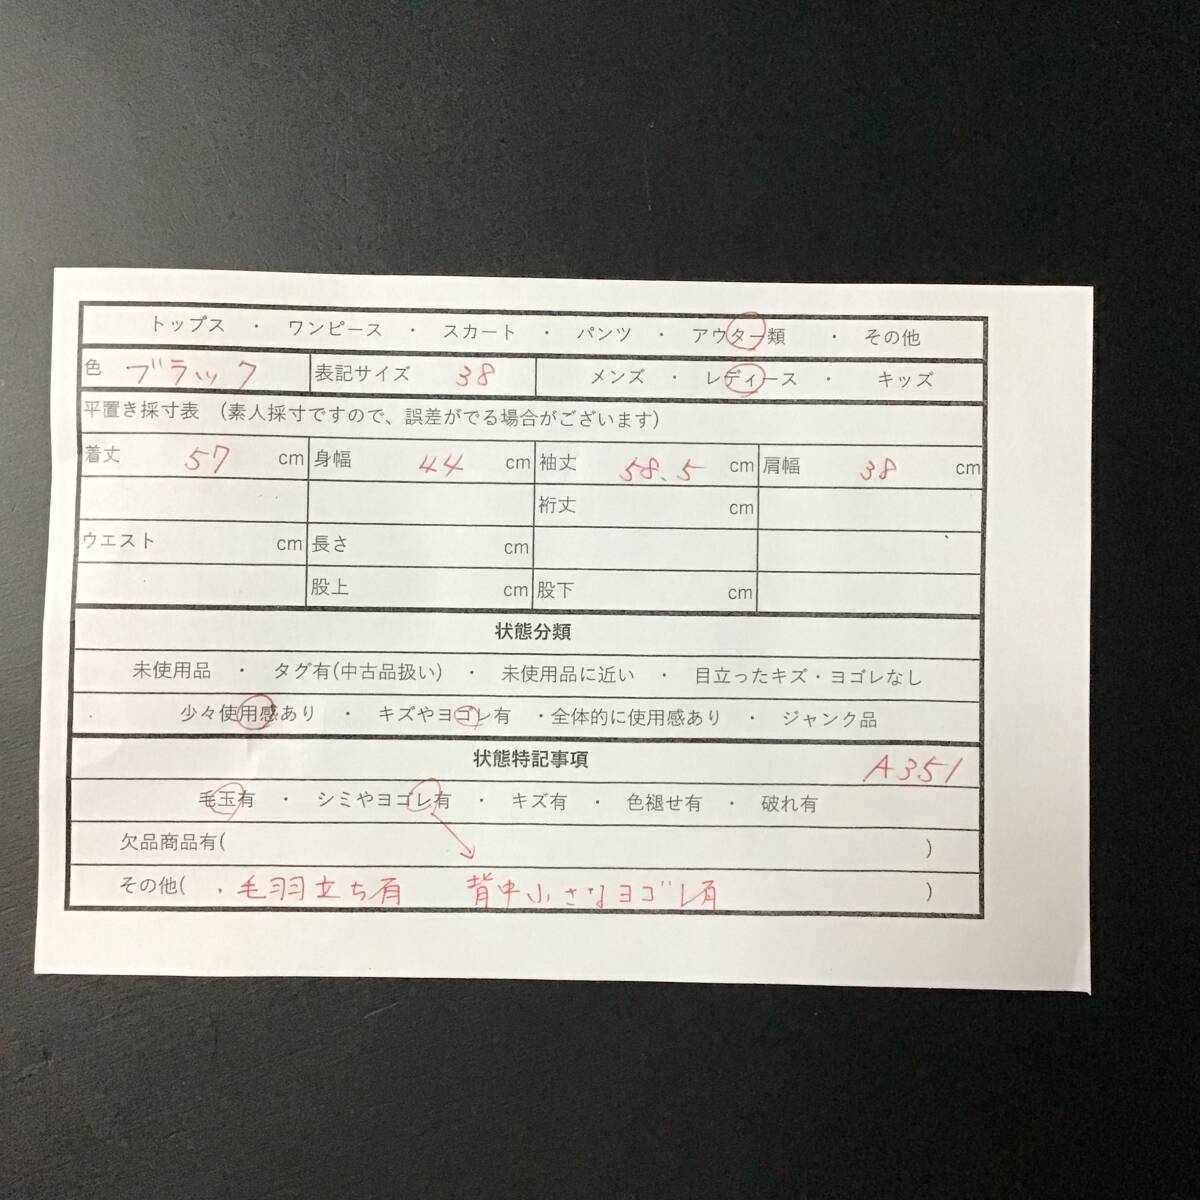 トップス ・ ワンピース ・ スカート ・ パンツ ・ アウター類 ・ その他
色 ブラック 表記サイズ 38 メンズ ・ レディース ・ キッズ
平置き採寸表 (素人採寸ですので、誤差がでる場合がございます)
着丈 57 cm 身幅 44 cm 袖丈 58.5 cm 肩幅 38 cm
裄丈 cm
ウエスト cm 長さ cm
股上 cm 股下 cm
状態分類
未使用品 ・ タグ有(中古品扱い) ・ 未使用品に近い ・ 目立ったキズ・ヨゴレなし
少々使用感あり ・ キズやヨゴレ有 ・全体的に使用感あり ・ ジャンク品
状態特記事項 A351
毛玉有 ・ シミやヨゴレ有 ・ キズ有 ・ 色褪せ有 ・ 破れ有
欠品商品有( )
その他( ・毛羽立ち有 背中小さなヨゴレ有 )